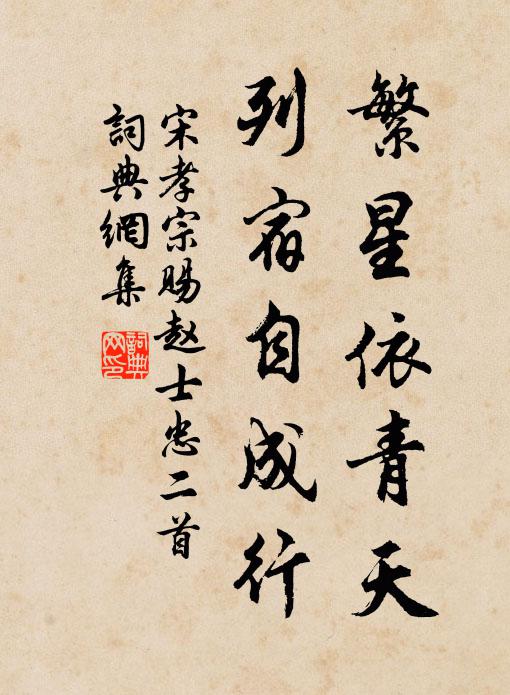 繁星依青天
列宿自成行
宋孝宗賜赵士忠二首
詞典網集
詞典网印